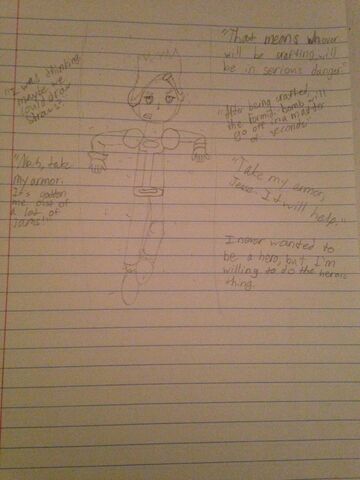 "That means whover
will be crafting will
be in serious danger."
"I was thinking
maybe we
could draw
straws."
"After being crafted,
the Formidi-bomb will
go off in a matter
of seconds."
"Nah, take
my armor.
It's gotten
me out of
a lot of
jams!"
"Take my armor,
Jesse. It will help."
I never wanted to
be a hero, but I'm
willing to do the heroic
thing.